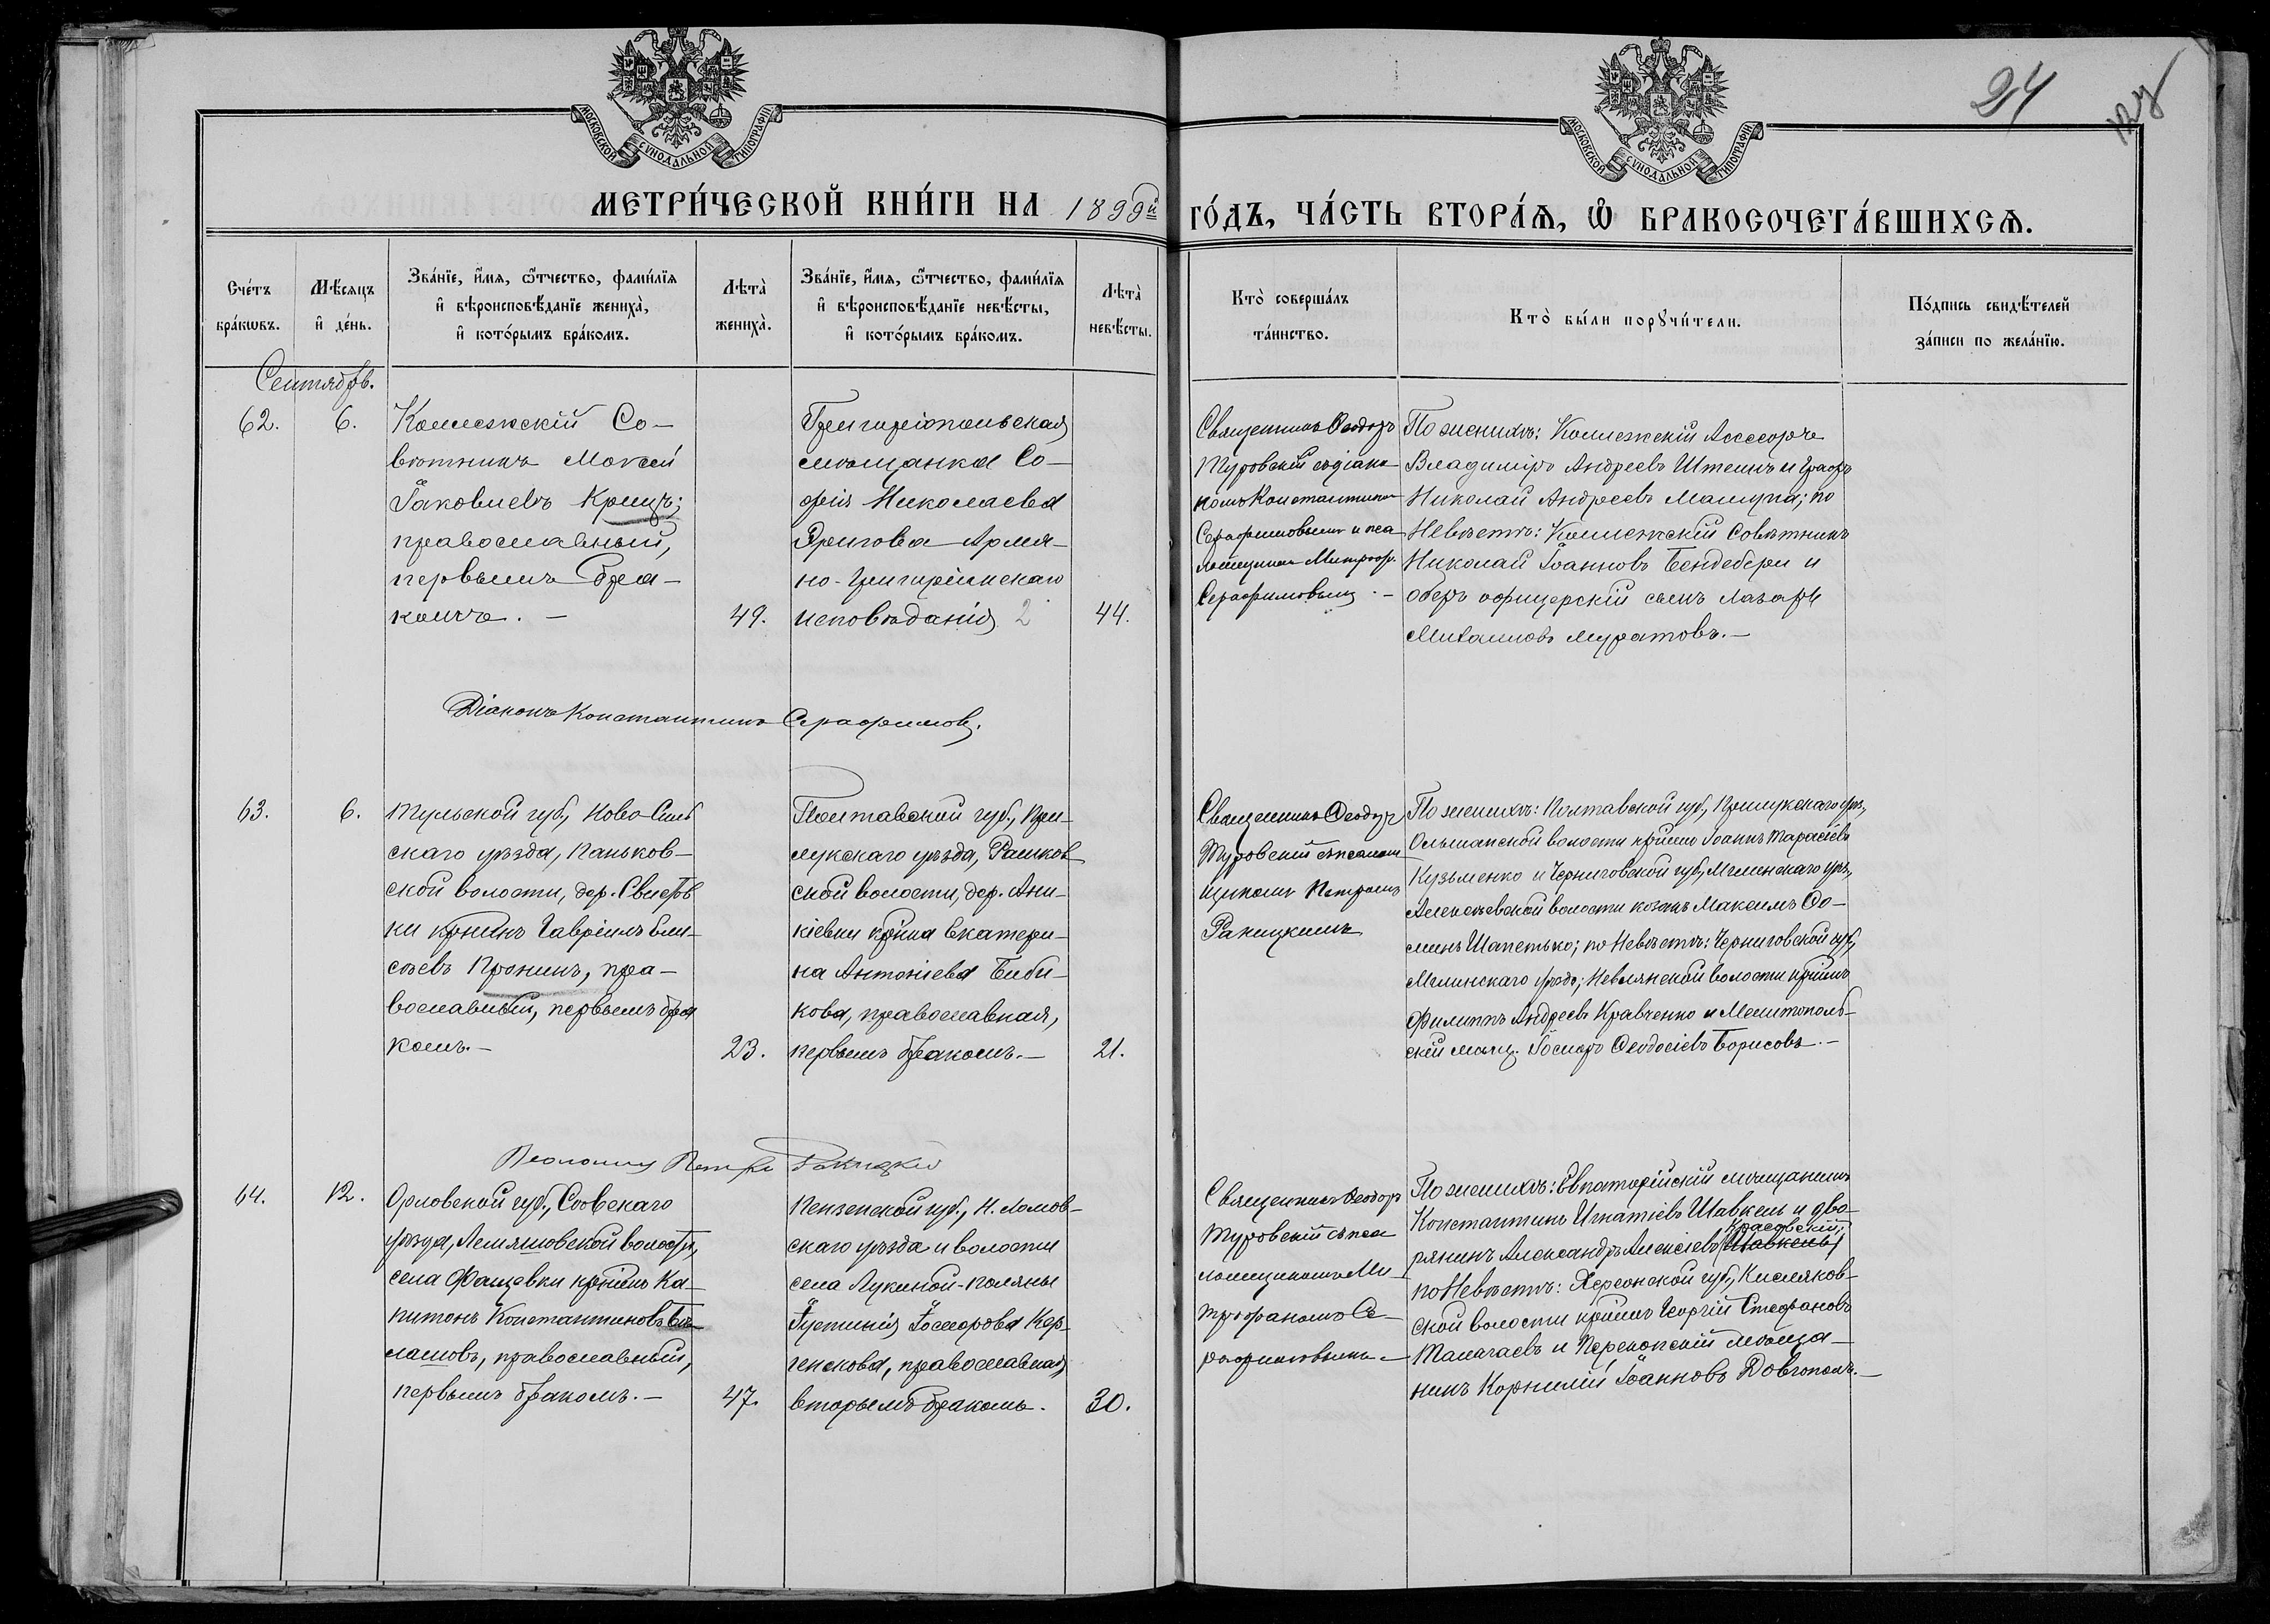 24
МОСКОВСКОЙ СѴНОДАЛЬНОЙ ТИПОГРАФІИ
МОСКОВСКОЙ СѴНОДАЛЬНОЙ ТИПОГРАФІИ
МЕТРИ́ЧЕСКОЙ КНИ́ГИ НА 1899й ГО́ДЪ, ЧА́СТЬ ВТОРА́Ѧ, Ѽ БРАКОСОЧЕТА́ВШИХСѦ.
Сче́тъ
бра́кωвъ.
Мѣ́сяцъ
и҆ де́нь.
Зва́нїе, и҆́мя, ѻ҆́тчество, фами́лїя
и҆ вѣроисповѣ́данїе жениха̀,
и҆ кото́рымъ бра́комъ.
Лѣта̀
жениха̀.
Зва́нїе, и҆́мя, ѻ҆́тчество, фами́лїя
и҆ вѣроисповѣ́данїе невѣ́сты,
и҆ кото́рымъ бра́комъ.
Лѣта̀
невѣ́сты.
Кто̀ соверша́лъ
та́инство.
Кто̀ бы́ли порꙋчи́тели.
По́дпись свидѣ́телей
за́писи по жела́нїю.
Сентябрь.
62. 6.
Коллежскій Со-
вѣтникъ Моисей
Іаковлевъ Крицъ;
православный,
первымъ бра-
комъ. — 49.
Григоріопольская
мѣщанка Со-
фія Николаева
Эригова Армя-
но-Григоріанскаго
исповѣданія 2 44.
Священникъ Ѳеодоръ
Туровскій съ діако
номъ Константиномъ
Серафимовымъ и пса
ломщикомъ Митроф.
Серафимовымъ. —
По женихѣ: Коллежскій Ассесоръ
Владиміръ Андреевъ Штелинъ и Графъ
Николай Андреевъ Мамуна; по
Невѣстѣ: Коллежскій Совѣтникъ
Николай Іоанновъ Бендебери и
оберъ офицерскій сынъ Лазарь
Михаиловъ Муратовъ. —
Діаконъ Константинъ Серафимовъ.
63. 6.
Тульской губ., Ново Силь
скаго уѣзда, Паньков-
ской волости,
ки кр-нинъ Гавріилъ Ели-
сѣевъ Пронинъ, пра-
вославный, первымъ бра
комъ. — 23.
Полтавской губ., При-
лукскаго уѣзда, Рашков
ской волости, дер. Ани-
кіевки кр-нка Екатери-
на Антоніева Биби-
кова, православная,
первымъ бракомъ. — 21.
Священникъ Ѳеодоръ
Туровскій съ псалом
щикомъ Петромъ
Ракицкимъ
По женихѣ: Полтавской губ., Прилукскаго уѣз.,
Ольшанской волости кр-нинъ Іоаннъ Тарасіевъ
Кузьменко и Черниговской губ., Мглинскаго уѣз.,
Алексѣевской волости козакъ Максимъ Ѳо-
минъ Шапетько; по Невѣстѣ: Черниговской губ.,
Мглинскаго уѣзда; волости кр-нинъ
Филиппъ Андреевъ Кравченко и Мелитополь-
скій мѣщ. Іосифъ Ѳеодосіевъ Борисовъ. —
Псаломщ. Петръ Ракицкій
64. 12.
Орловской губ., Сѣвскаго
уѣзда, волости,
села Фащевки кр-нинъ Ка-
питонъ Константиновъ Ба-
лашовъ, православный,
первымъ бракомъ. — 47.
Пензенской губ., Н. Ломов-
скаго уѣзда и волости
села Лукиной-поляны
Іустинія Іосифова Кор-
генкова, православная,
вторымъ бракомъ. 30.
Священникъ Ѳеодоръ
Туровскій съ пса
ломщикомъ Ми-
трофаномъ Се-
рафимовымъ —
По женихѣ: Евпаторійскій мѣщанинъ
Константинъ Игнатіевъ Шавкель и дво-
Красовскій;
рянинъ Александръ Алексіевъ Шавкель;
по Невѣстѣ: Херсонской губ., Кисляков-
ской волости кр-нинъ Георгій Стефановъ
Малачаевъ и Перекопскій мѣща-
нинъ Корнилій Іоанновъ Довгополъ. —